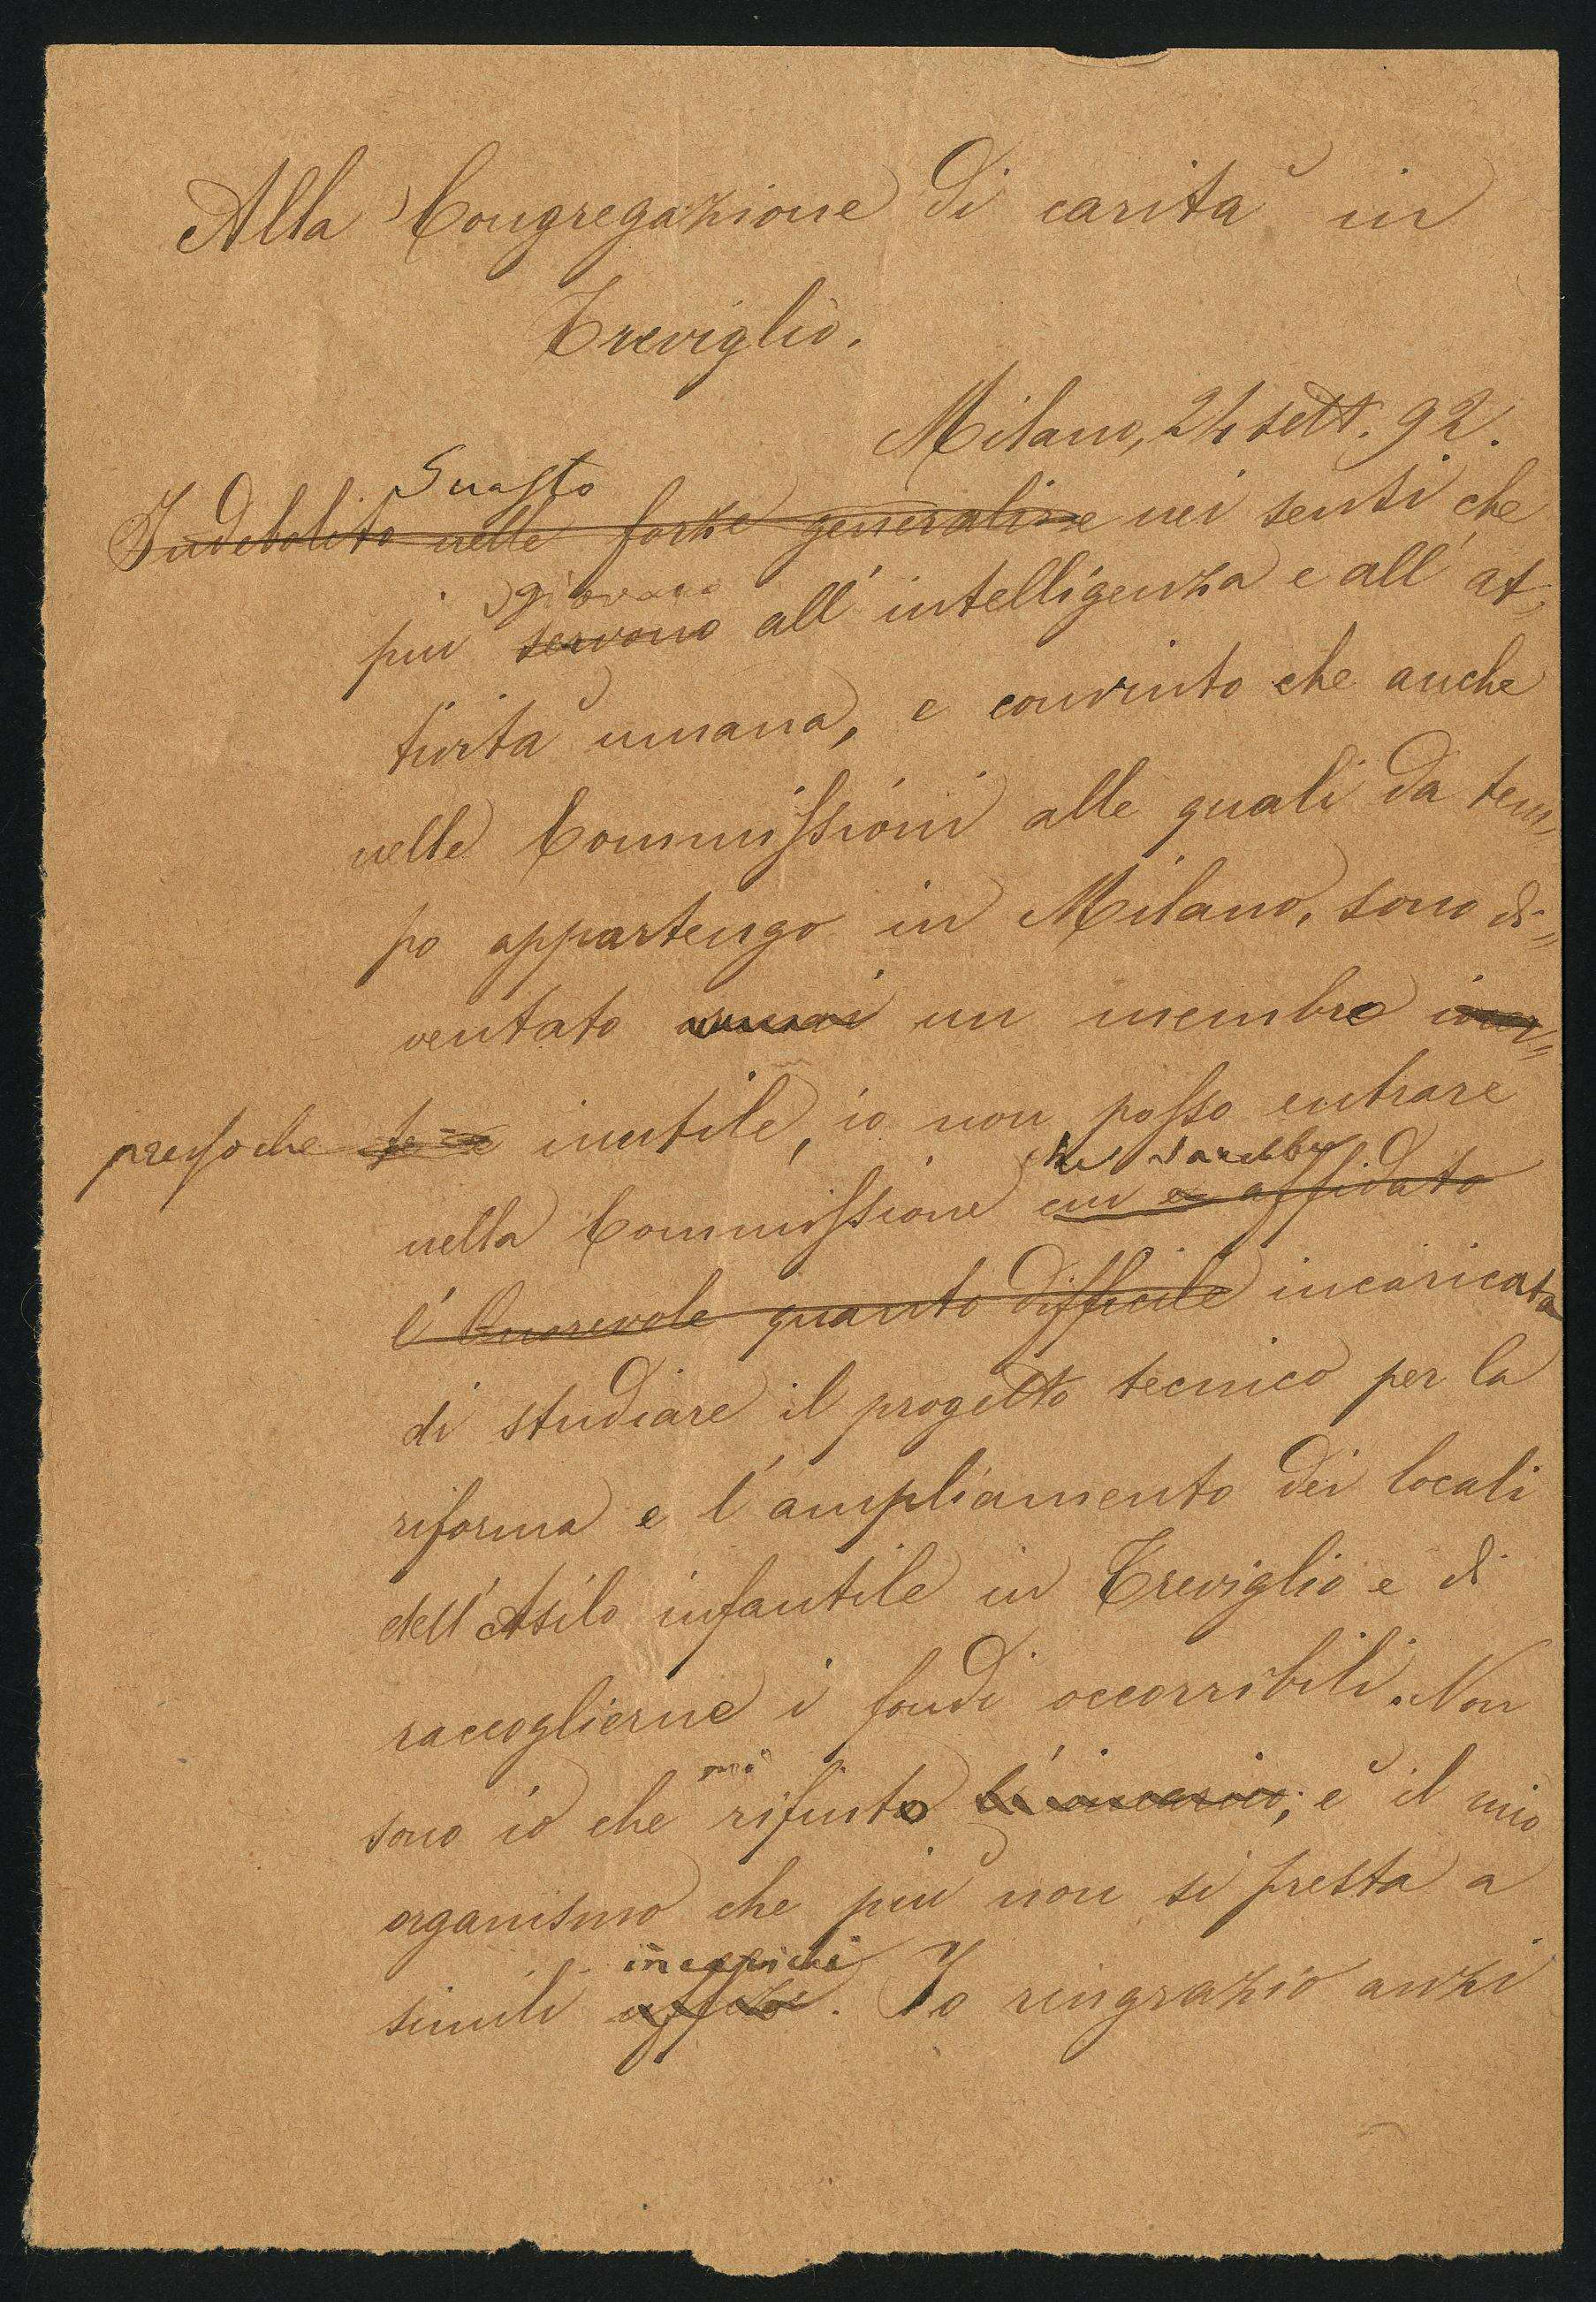 Alla Congregazione di carità in
Treviglio.
Milano, 24 sett. 92.
Guasto
Indebolito nelle forze generali e nei sensi che
giovano
più servono all'intelligenza e all'at-
tività umana, e convinto che anche
nelle Commissioni alle quali da tem-
po appartengo in Milano, sono di-
ventato un membro
pressoche inutile, io non posso entrare
che sarebbe
nella Commissione cui è affidato
l'Onorevole quanto difficile incaricata
di studiare il progetto tecnico per la
riforma e l'ampliamento dei locali
dell'Asilo infantile in Treviglio e di
raccoglierne i fondi occorribili. Non
mi
sono io che rifiuto l'incarico; è il mio
organismo che più non si presta a
incarichi
simili uffici. Io ringrazio anzi